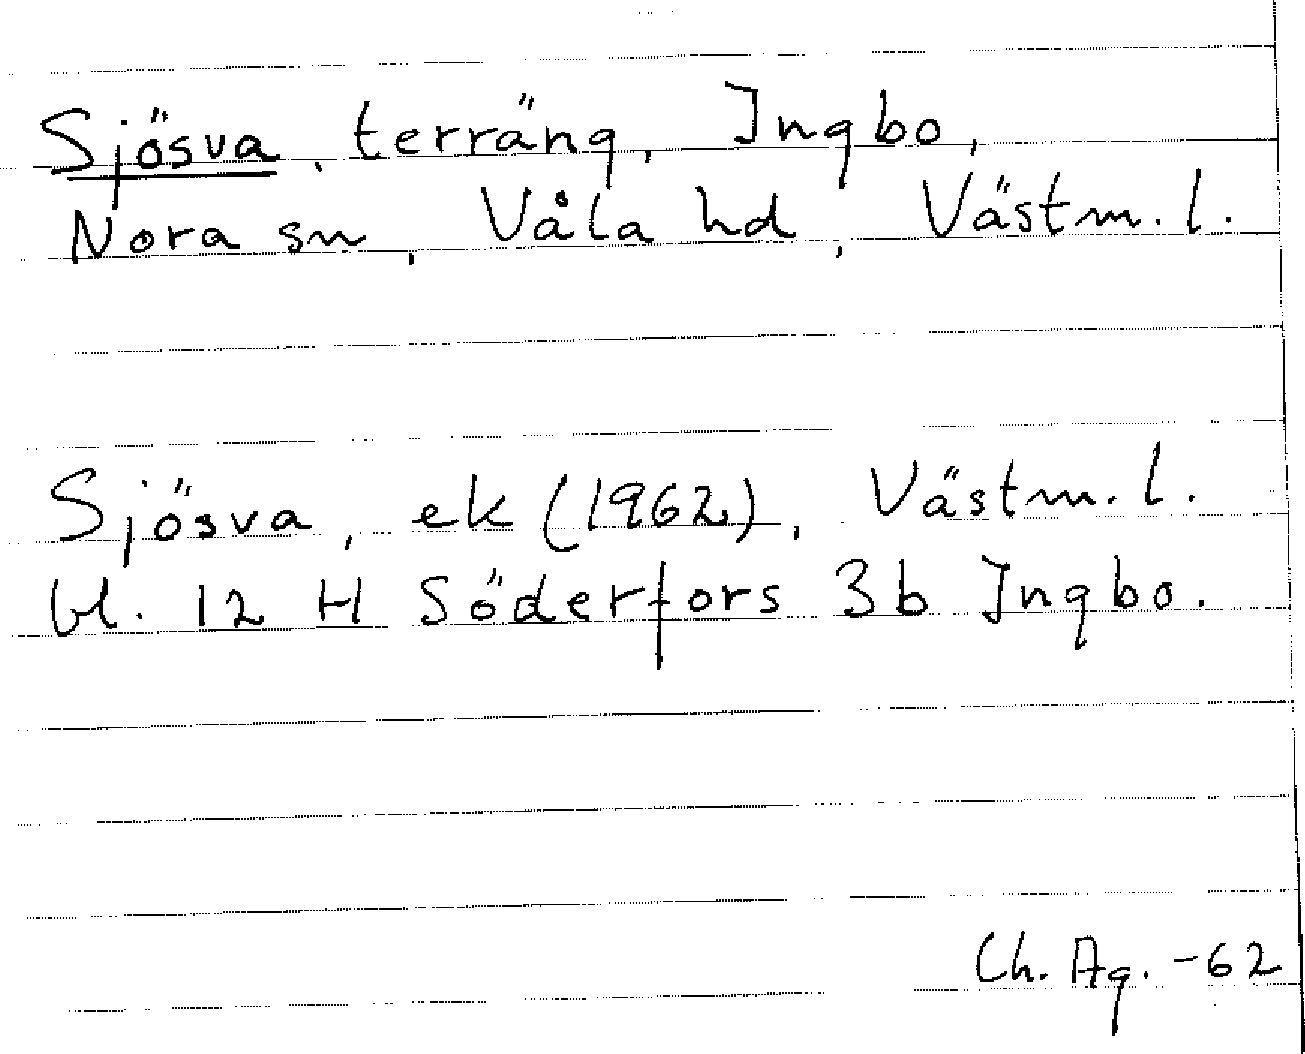 Sjösva, terräng, Ingbo,
Nora sn, Våla hd, Västm. l.
Sjösva, ek (1962), Västm. l.
bl. 12 H Söderfors 3b Ingbo.
Ch. Ag. -62